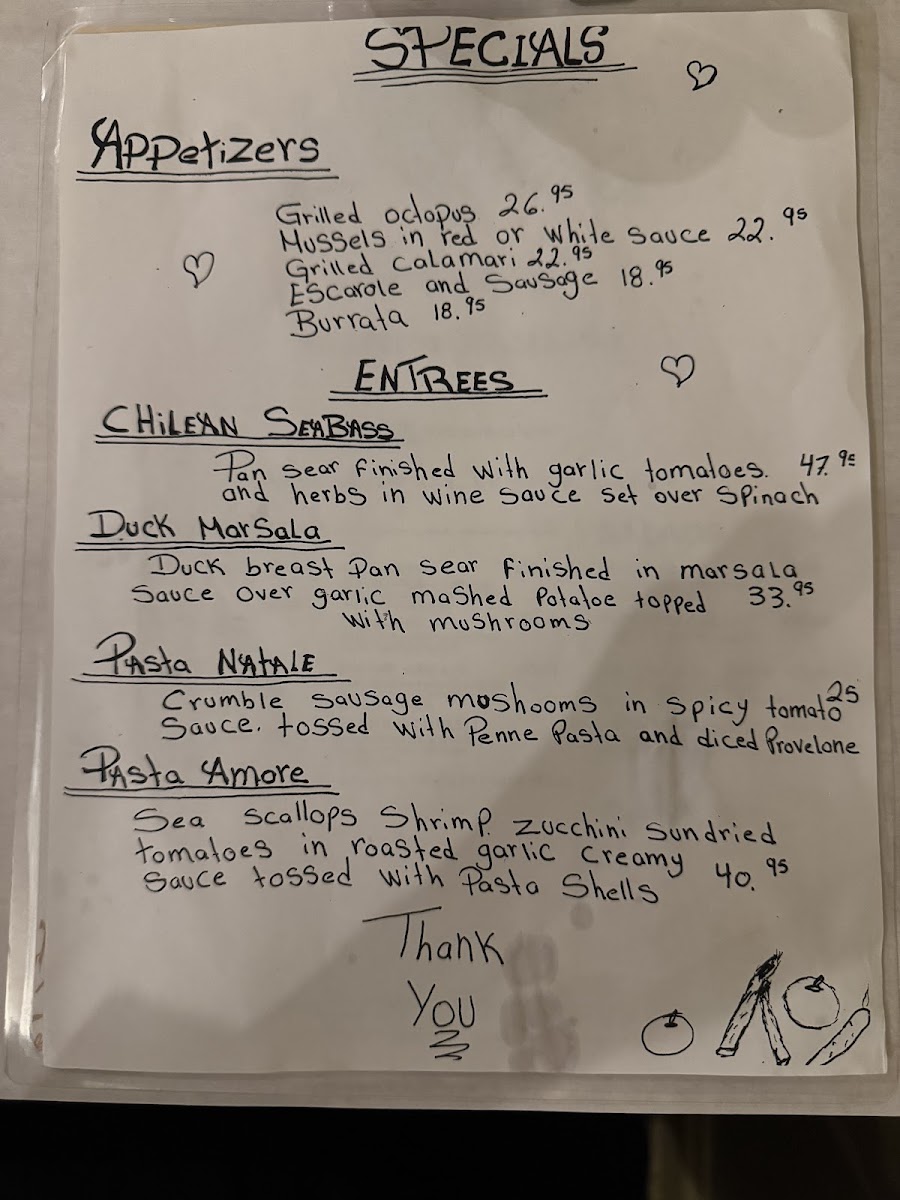 SPECIALS
Appetizers
Grilled octopus 26.95
Mussels in red or white sauce 22.95
Grilled calamari 22.95
Escarole and Sausage 18.95
Burrata 18.95
ENTREES
CHiLEAN SEABASS
Pan sear finished with garlic tomatoes. 47.95
and herbs in wine sauce set over spinach
Duck Marsala
Duck breast pan sear finished in marsala
sauce over garlic mashed potatoe topped 33.95
with mushrooms
Pasta NATALE
Crumble sausage moshooms in spicy tomato 25
sauce. tossed with Penne Pasta and diced Provelone
Pasta Amore
Sea scallops Shrimp. zucchini sundried
tomatoes in roasted garlic creamy
sauce tossed with Pasta Shells 40.95
Thank
You